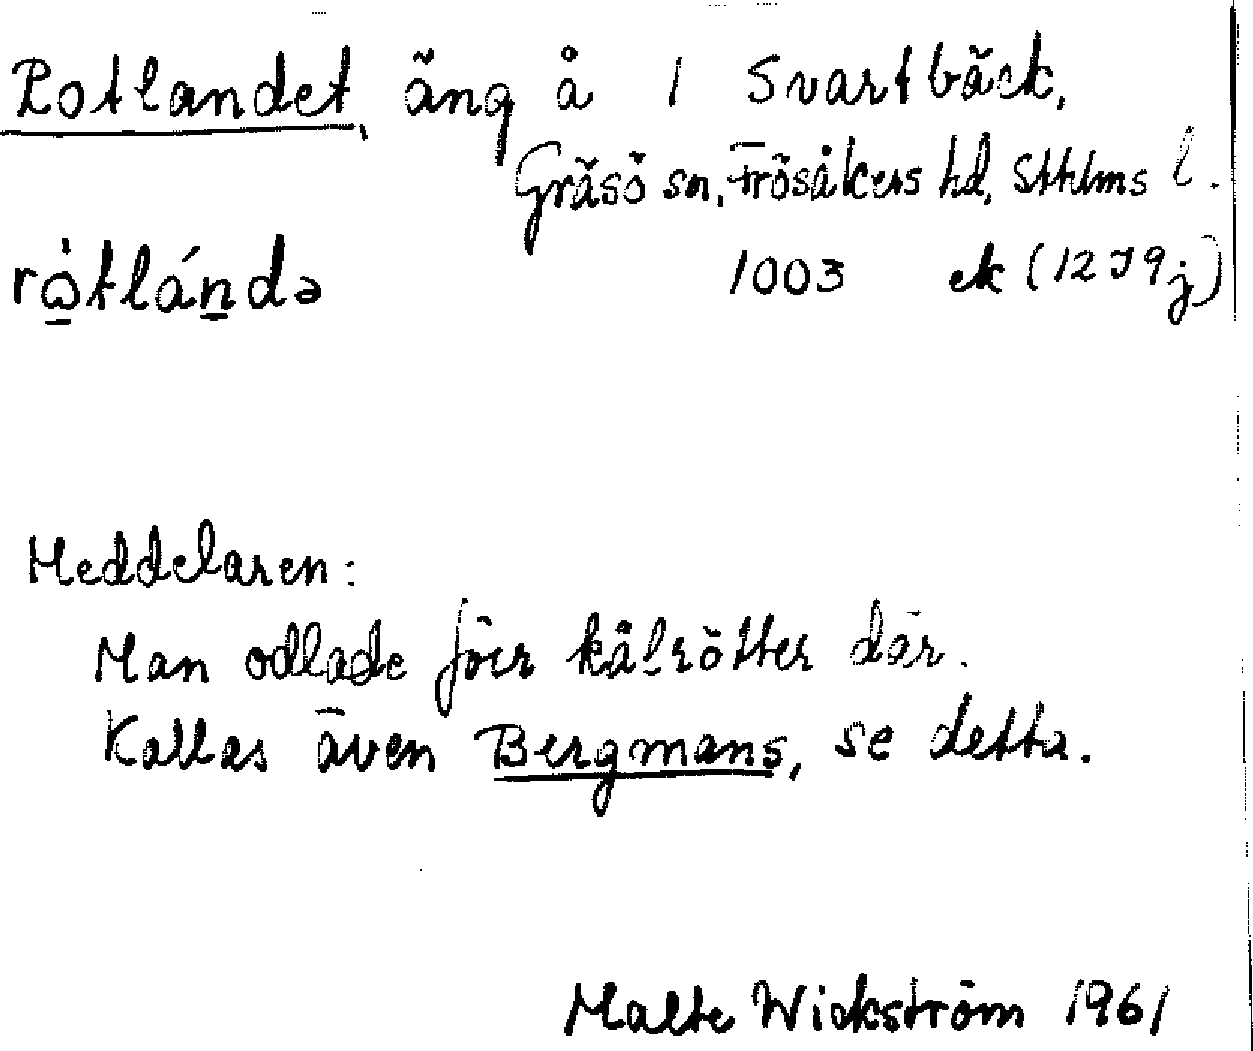 Rotlandet, äng å 1 Svartbäck,
Gräsö sn, Frösåkers hd, Sthlms l.
rὼ̲tlán̲də 1003 ek (1279j)
Meddelaren:
Man odlade förr kålrötter där.
Kallas även Bergmans, se detta.
Malte Wickström 1961